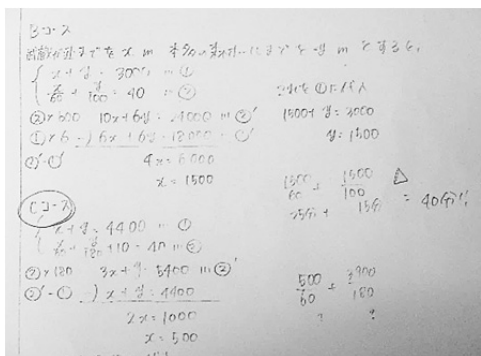 Bコース
までを x m までを y m とすると、
x + y = 3000 … ①
x/60 + y/100 = 40 … ②
②×600 10x + 6y = 24000 … ②'
①×6 -) 6x + 6y = 18000 … ①'
②'-①' 4x = 6000
x = 1500
これを①に代入
1500 + y = 3000
y = 1500
1500/60 + 1500/100
25分 + 15分 = 40分
Cコース
x + y = 4400 … ①
x/60 + y/180 + 10 = 40 … ②
②×180 3x + y = 5400 … ②'
②'-① -) x + y = 4400
2x = 1000
x = 500
500/60 + 3900/180
? ?